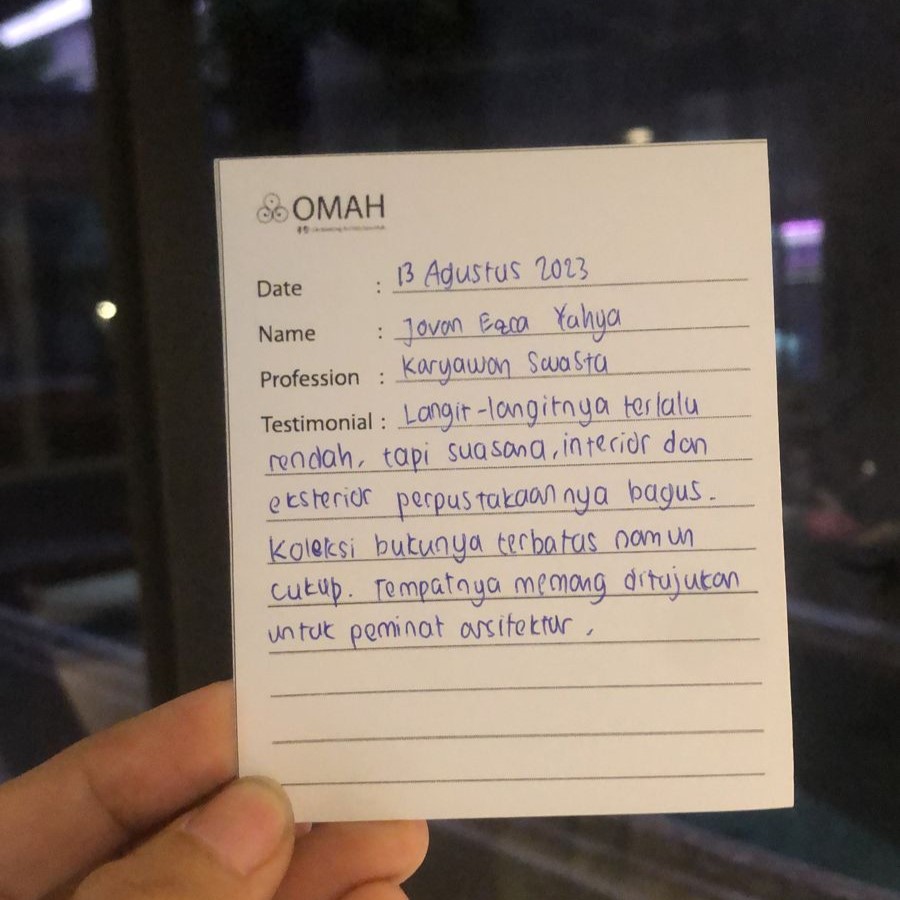 OMAH
Date : 13 Agustus 2023
Name : Jovan Ezra Yahya
Profession : Karyawan Swasta
Testimonial : Langit-langitnya terlalu
rendah, tapi suasana, interior dan
eksterior perpustakaannya bagus.
Koleksi bukunya terbatas namun
cukup. Tempatnya memang ditujukan
untuk peminat arsitektur.